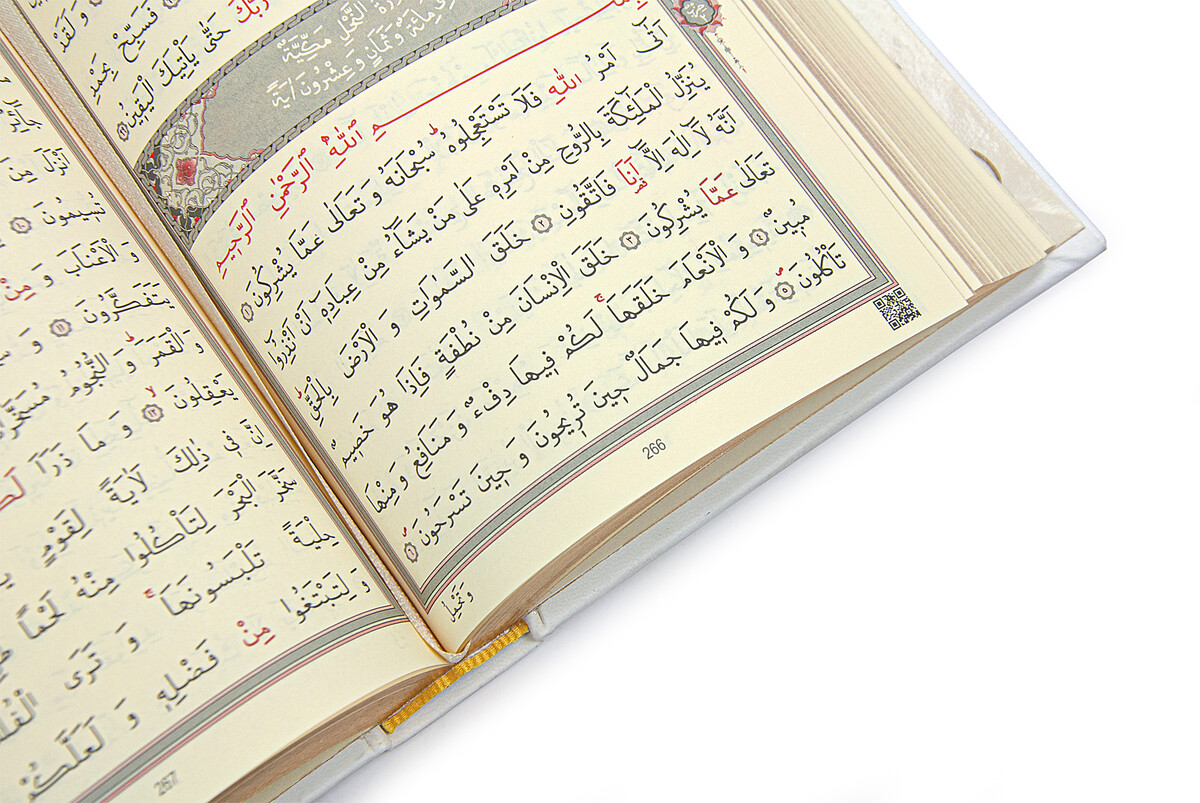 رَبَّكَ حَتّٰى يَأْتِيَكَ الْيَقِينُ ﴿٩٩﴾
سُورَةُ النَّحْلِ مَكِّيَّةٌ
مِائَةٌ وَ ثَمَانٍ وَ عِشْرُونَ اٰيَةً
بِسْمِ اللّٰهِ الرَّحْمٰنِ الرَّحِيمِ
اَتٰٓى اَمْرُ اللّٰهِ فَلَا تَسْتَعْجِلُوهُۜ سُبْحَانَهُ وَ تَعَالٰى عَمَّا يُشْرِكُونَ ﴿١﴾
يُنَزِّلُ الْمَلٰٓئِكَةَ بِالرُّوحِ مِنْ اَمْرِهٖ عَلٰى مَنْ يَشَٓاءُ مِنْ عِبَادِهٖٓ اَنْ اَنْذِرُٓوا
اَنَّهُ لَٓا اِلٰهَ اِلَّٓا اَنَا۬ فَاتَّقُونِ ﴿٢﴾ خَلَقَ السَّمٰوَاتِ وَ الْاَرْضَ بِالْحَقِّۜ
تَعَالٰى عَمَّا يُشْرِكُونَ ﴿٣﴾ خَلَقَ الْاِنْسَانَ مِنْ نُطْفَةٍ فَاِذَا هُوَ خَصِيمٌ
مُبِينٌ ﴿٤﴾ وَ الْاَنْعَامَ خَلَقَهَاۚ لَكُمْ فِيهَا دِفْءٌ وَ مَنَافِعُ وَ مِنْهَا
تَأْكُلُونَۖ ﴿٥﴾ وَ لَكُمْ فِيهَا جَمَالٌ حِينَ تُرِيحُونَ وَ حِينَ تَسْرَحُونَۖ ﴿٦﴾
وَ تَحْمِلُ
266
اَنْزَلَ مِنَ
تُسِيمُونَ ﴿١٠﴾
وَ الْاَعْنَابَ وَ مِنْ
يَتَفَكَّرُونَ ﴿١١﴾ وَ
وَ الْقَمَرَۜ وَ النُّجُومُ مُسَخَّرَاتٌ
يَعْقِلُونَۙ ﴿١٢﴾ وَ مَا ذَرَاَ
اِنَّ فٖى ذٰلِكَ لَاٰيَةً لِقَوْمٍ
سَخَّرَ الْبَحْرَ لِتَأْكُلُوا مِنْهُ لَحْمًا
حِلْيَةً تَلْبَسُونَهَاۚ وَ تَرَى
وَ لِتَبْتَغُوا مِنْ فَضْلِهٖ وَ لَعَلَّكُمْ
267